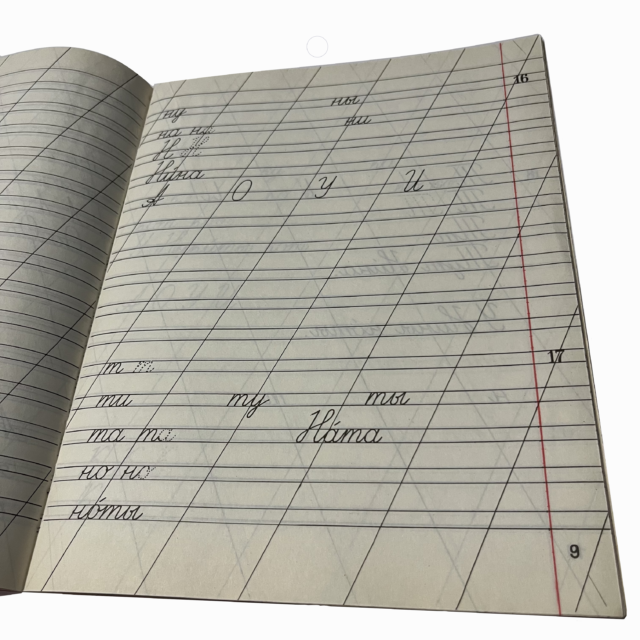 16
ну ны
на на ни
Н Н
Нина
А О У И
17
т т
ти ту ты
та та На́та
но но
но́ты
9